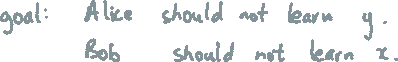 goal: Alice should not learn y.
Bob should not learn x.